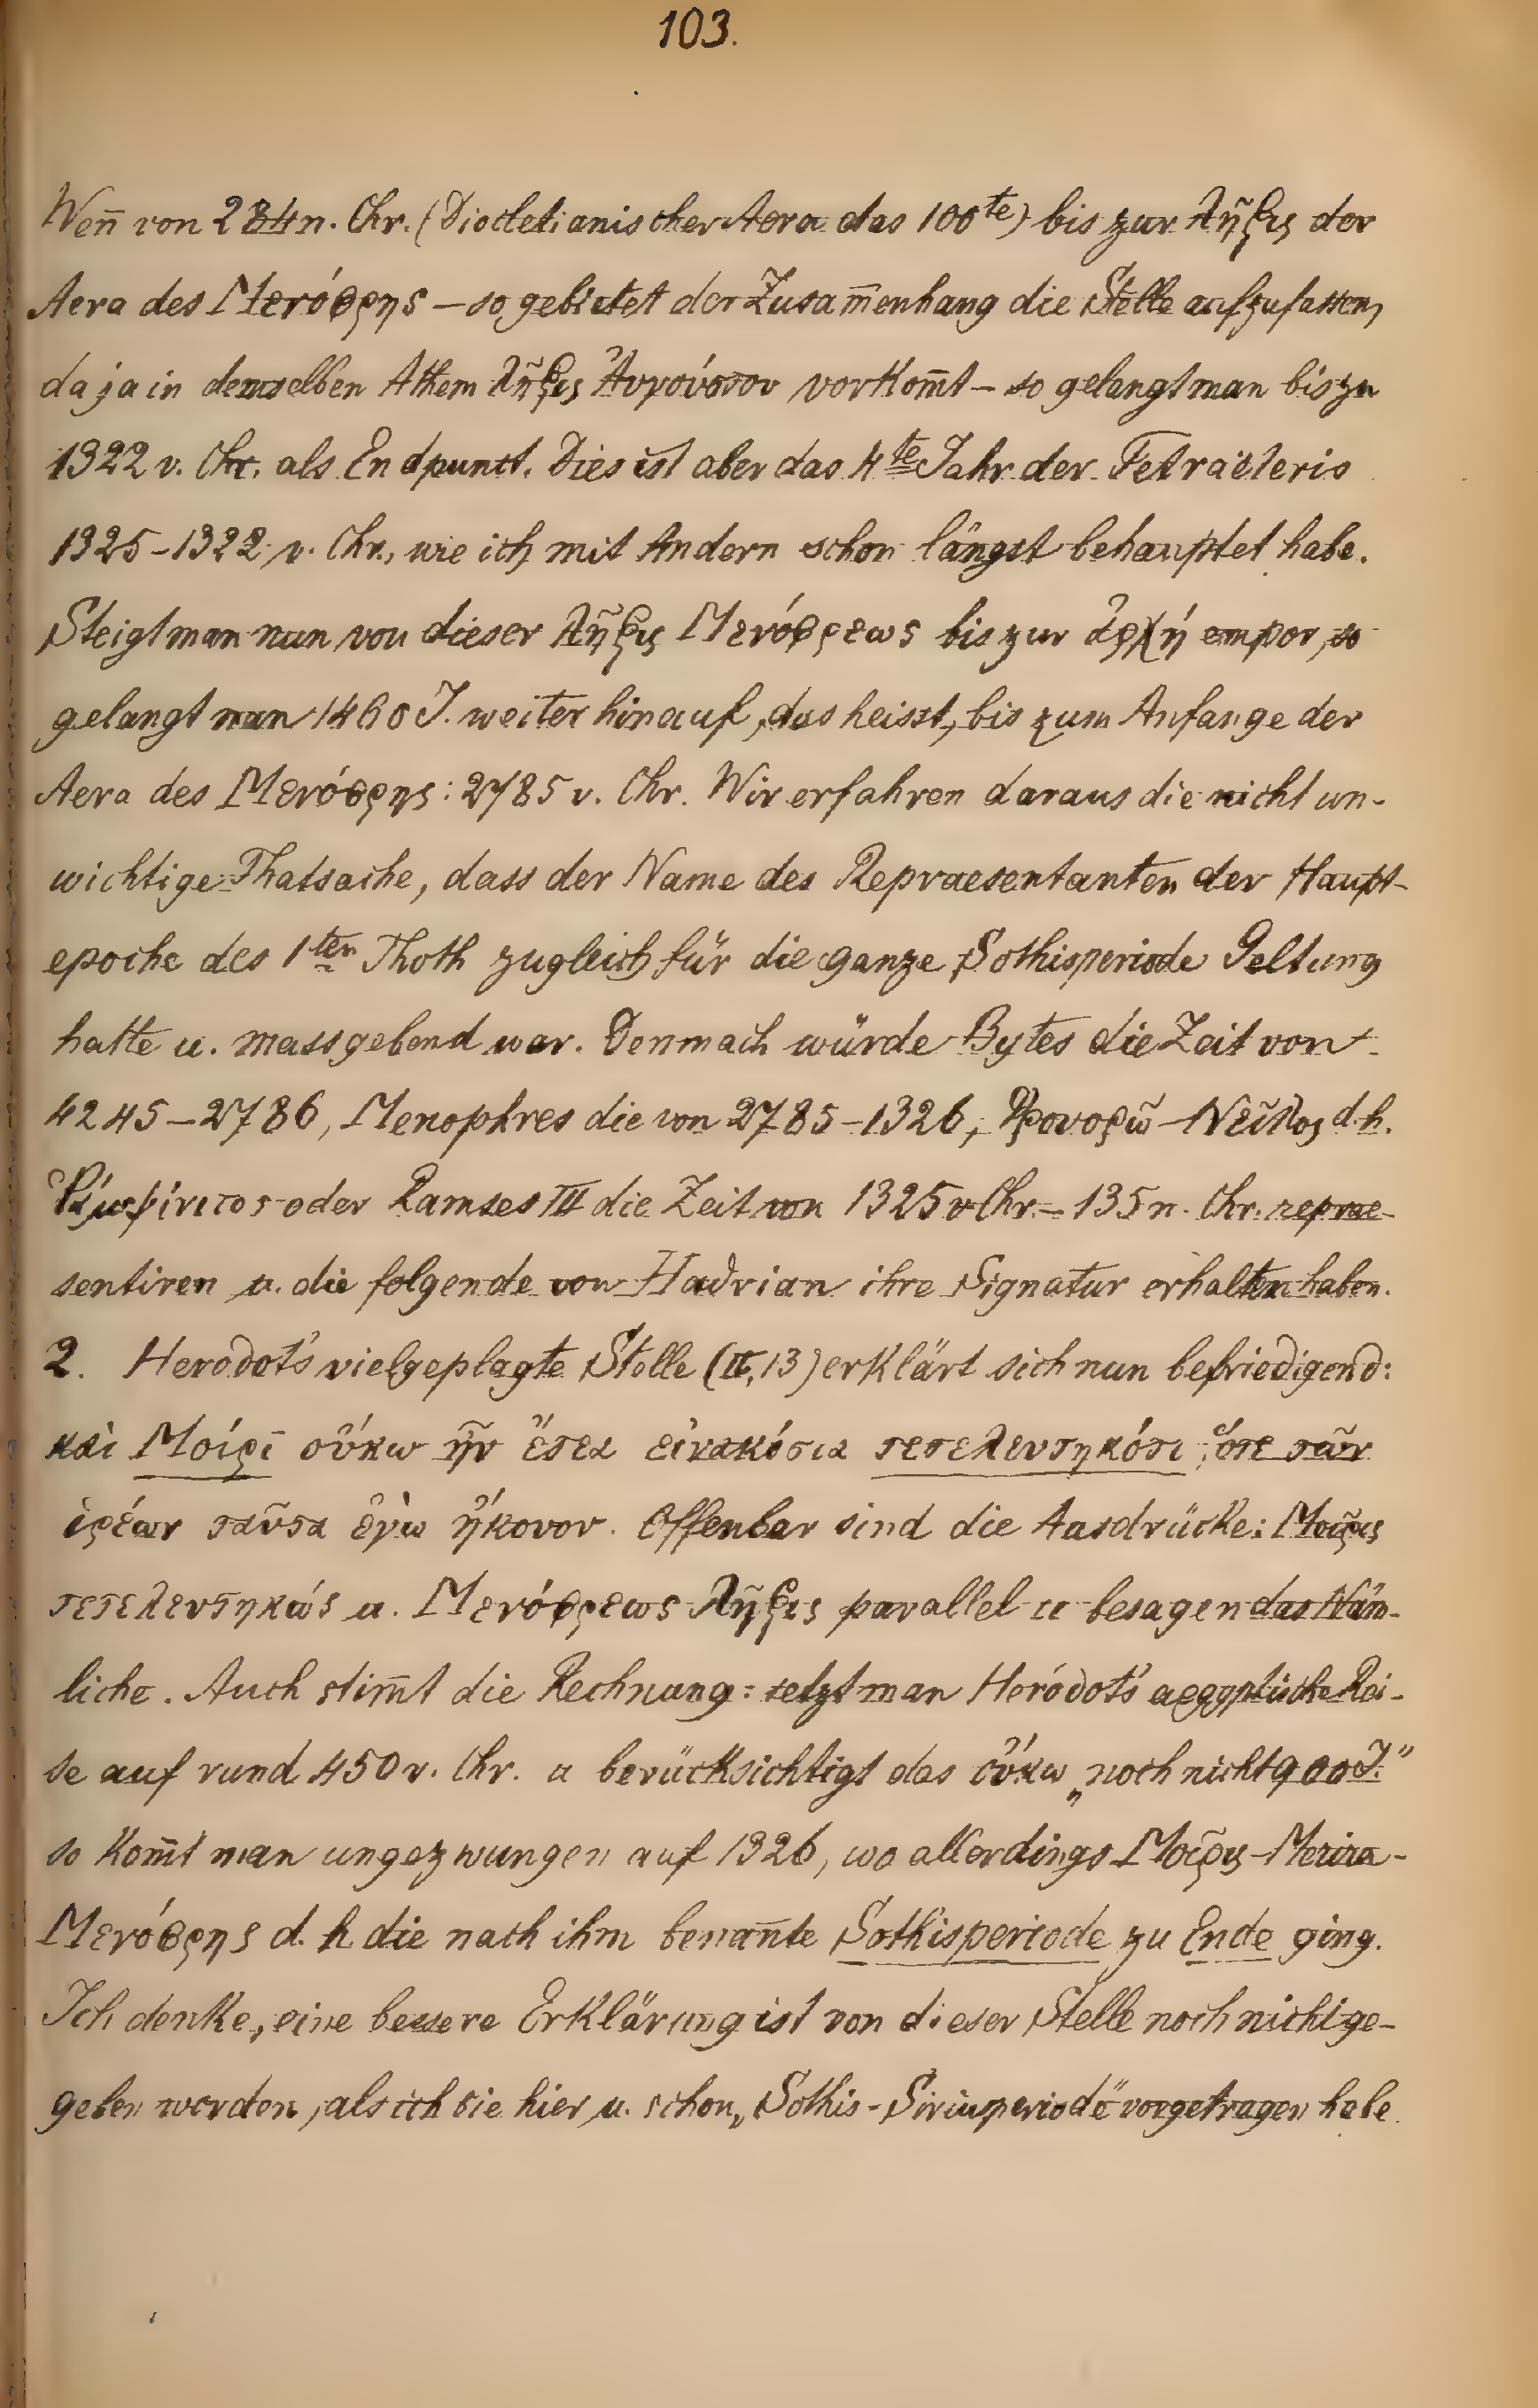 103.
Wen̄ von 284 n. Chr. (Diocletianischer Aera das 100te) bis zur λῆξις der
Aera des Μενόφρης – so gebietet der Zusam̄enhang die Stelle aufzufassen,
da ja in demselben Athem λῆξις Αὐγούστου vorkom̄t – so gelangt man bis zu
1322 v. Chr. als Endpunct. Dies ist aber das 4te Jahr der Tetraëteris
1325–1322 v. Chr., wie ich mit Andern schon längst behauptet habe.
Steigt man nun von dieser λῆξις Μενόφρεως bis zur ἀρχή empor, so
gelangt man 1460 J. weiter hinauf, das heisst, bis zum Anfange der
Aera des Μενόφρης: 2785 v. Chr. Wir erfahren daraus die nicht un-
wichtige Thatsache, dass der Name des Repraesentanten der Haupt-
epoche des 1ten Thoth zugleich für die ganze Sothisperiode Geltung
hatte u. massgebend war. Demnach würde Bytes die Zeit von
4245–2786, Menophres die von 2785–1326, Φρουορῶ–Νεῖλος d. h.
Ῥαμψίνιτος oder Ramses III die Zeit von 1325 v Chr – 135 n. Chr. reprae-
sentiren u. die folgende von Hadrian ihre Signatur erhalten haben.
2. Herodot's vielgeplagte Stelle (II, 13) erklärt sich nun befriedigend:
καὶ Μοίρι οὔκω ἦν ἔτεα εἰνακόσια τετελευτηκότι, ὅτε τῶν
ἱρέων ταῦτα ἐγὼ ἤκουον. Offenbar sind die Ausdrücke: Μοῖρις
τετελευτηκώς u. Μενόφρεως λῆξις parallel u besagen das Näm-
liche. Auch stim̄t die Rechnung: setzt man Herodot's aegyptische Rei-
se auf rund 450 v. Chr. u berücksichtigt das οὔκω „noch nicht 900 J."
so kom̄t man ungezwungen auf 1326, wo allerdings Μοῖρις–Merira-
Μενόφρης d. h die nach ihm benan̄te Sothisperiode zu Ende ging.
Ich denke, eine bessere Erklärung ist von dieser Stelle noch nicht ge-
geben worden, als ich sie hier u. schon „Sothis-Siriusperiode" vorgetragen habe